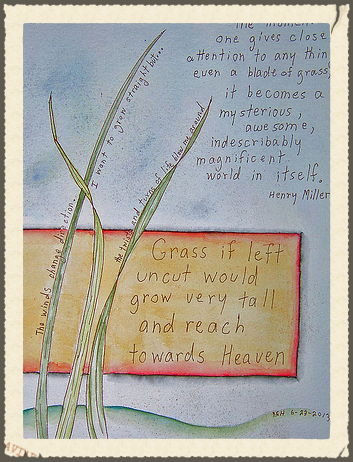 the moment
one gives close
attention to any thin
even a blade of grass
it becomes a
mysterious,
awesome,
indescribably
magnificent
world in itself.
Henry Miller
I want to grow straight but...
the twists and turns of life blow me around
The winds change direction.
Grass if left
uncut would
grow very tall
and reach
towards Heaven
6-27-2013